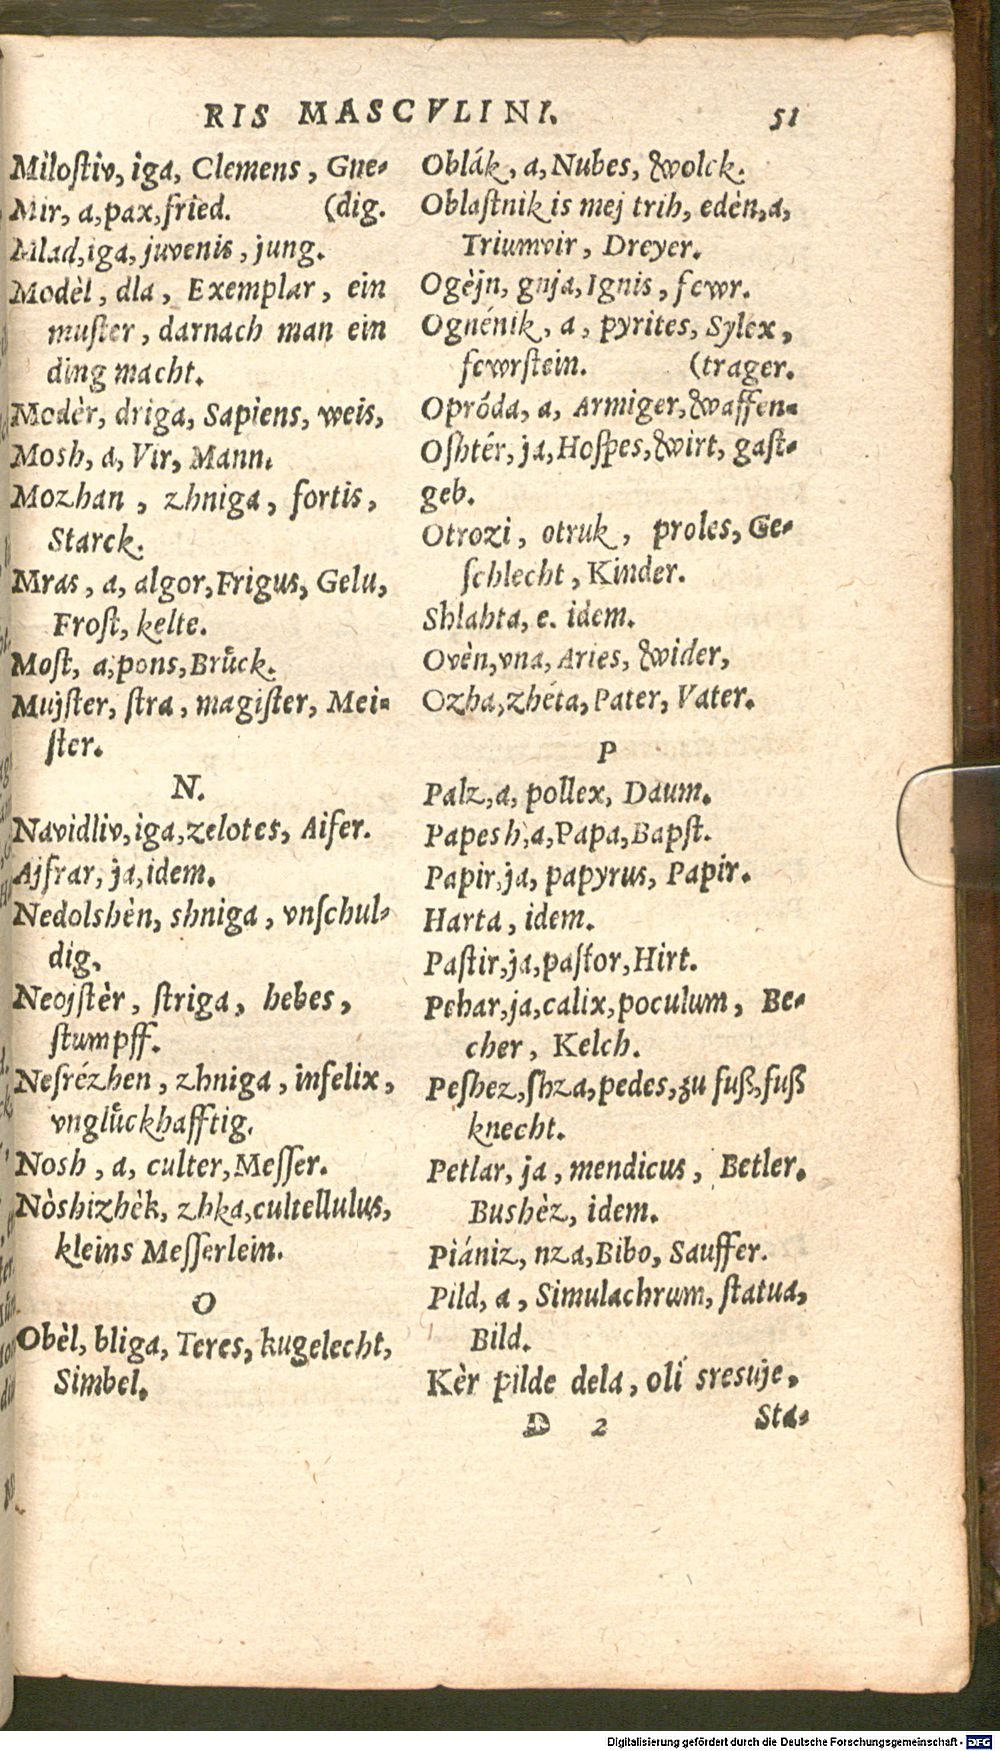 RIS MASCVLINI. 51
Miloſtiv, iga, Clemens, Gne-
Mir, a, pax, fried. (dig.
Mlad, iga, juvenis, jung.
Modèl, dla, Exemplar, ein
muſter, darnach man ein
ding macht.
Modèr, driga, Sapiens, weis,
Mosh, a, Vir, Mann.
Mozhan, zhniga, fortis,
Starck.
Mras, a, algor, Frigus, Gelu,
Froſt, kelte.
Moſt, a, pons, Bruͤck.
Mujſter, ſtra, magiſter, Mei-
ſter.
N.
Navidliv, iga, zelotes, Aifer.
Ajfrar, ja, idem.
Nedolshèn, shniga, vnſchul-
dig,
Neojſtèr, ſtriga, hebes,
ſtumpff.
Nesrézhen, zhniga, infelix,
vngluͤckhafftig.
Nosh, a, culter, Meſſer.
Nòshizhèk, zhka, cultellulus,
kleins Meſſerlein.
O
Obèl, bliga, Teres, kugelecht,
Simbel.
Oblák, a, Nubes, Wolck.
Oblaſtnik is mej trih, edèn, a,
Triumvir, Dreyer.
Ogèjn, gnja, Ignis, fewr.
Ognénik, a, pyrites, Sylex,
fewrſtein. (trager.
Opróda, a, Armiger, Waffen-
Oſhtér, ja, Hoſpes, Wirt, gaſt-
geb.
Otrozi, otruk, proles, Ge-
ſchlecht, Kinder.
Shlahta, e. idem.
Ovèn, vna, Aries, Wider,
Ozha, zhéta, Pater, Vater.
P
Palz, a, pollex, Daum.
Papesh, a, Papa, Bapſt.
Papir, ja, papyrus, Papir.
Harta, idem.
Paſtir, ja, paſtor, Hirt.
Pehar, ja, calix, poculum, Be-
cher, Kelch.
Peſhez, ſhza, pedes, zu fuß, fuß
knecht.
Petlar, ja, mendicus, Betler.
Bushèz, idem.
Piániz, nza, Bibo, Sauffer.
Pild, a, Simulachrum, ſtatua,
Bild.
Kèr pilde dela, olí sresuje,
D 2 Sta-
Digitalisierung gefördert durch die Deutsche Forschungsgemeinschaft - DFG